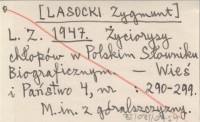 [LASOCKI Zygmunt]
L. Z. 1947. Życiorysy
chłopów w Polskim Słowniku
Biograficznym. — Wieś
i Państwo 4, nr : 290-299.
M.in. z góralszczyzny.